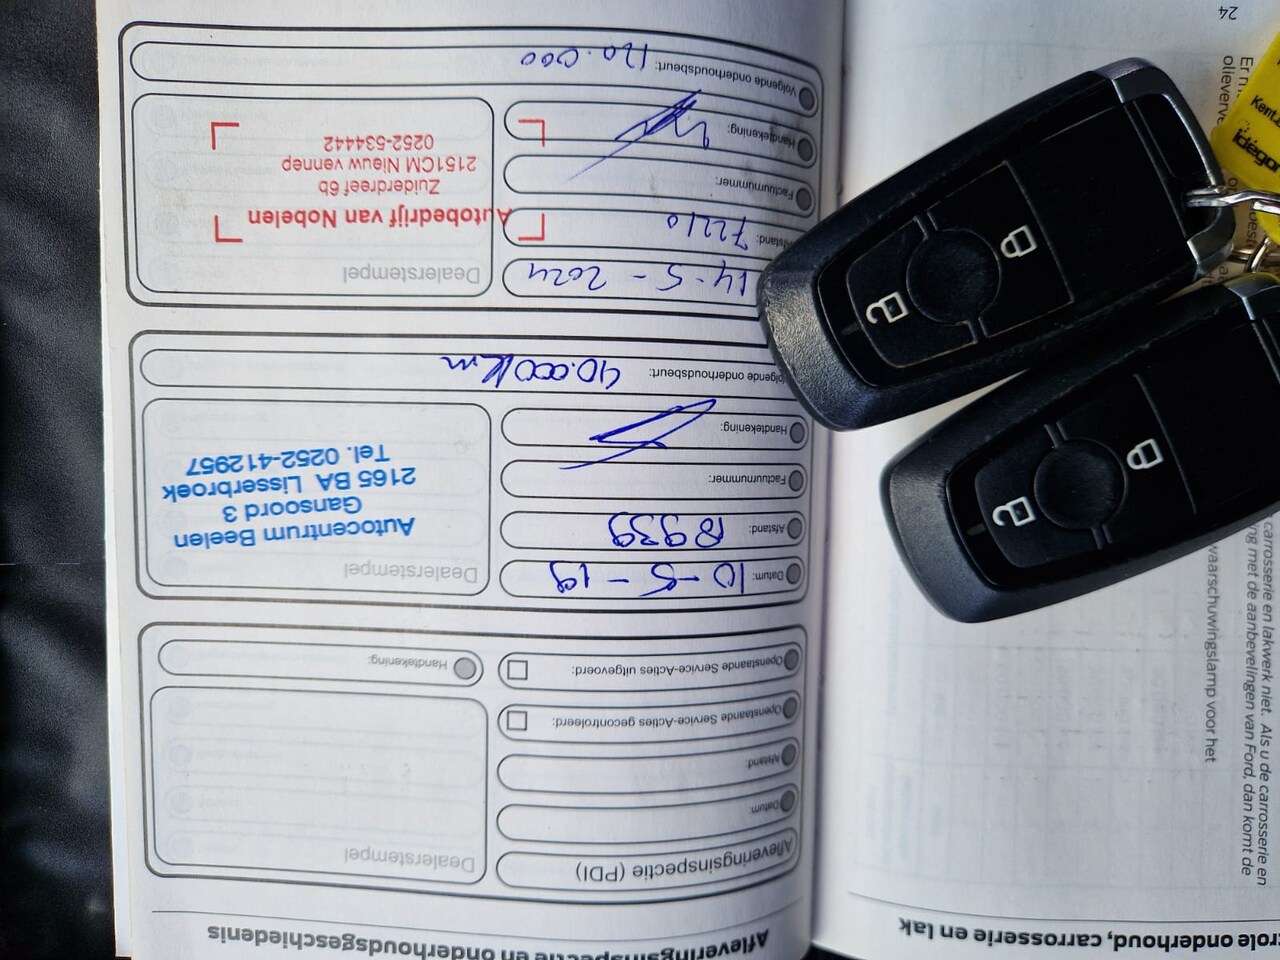 Afleveringsinspectie en onderhoudsgeschiedenis
Afleveringsinspectie (PDI)
Datum:
Afstand:
Openstaande Service-Acties gecontroleerd:
Openstaande Service-Acties uitgevoerd:
Dealerstempel
Handtekening:
Datum: 10-5-19
Afstand: 18939
Factuurnummer:
Handtekening:
Volgende onderhoudsbeurt: 40.000km
Dealerstempel
Autocentrum Beelen
Gansoord 3
2165 BA Lisserbroek
Tel. 0252-412957
14-5-2024
Afstand: 72210
Factuurnummer:
Handtekening:
Volgende onderhoudsbeurt: 120.000
Dealerstempel
Autobedrijf van Nobelen
Zuiderdreef 6b
2151CM Nieuw vennep
0252-534442
role onderhoud, carrosserie en lak
carrosserie en lakwerk niet. Als u de carrosserie en
ng met de aanbevelingen van Ford, dan komt de
waarschuwingslamp voor het
olieverve
24